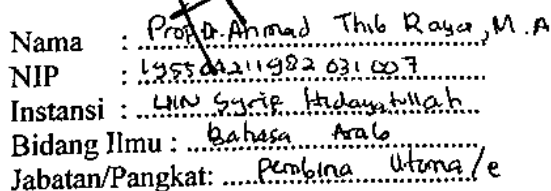 Nama : Prof. Dr. Ahmad Thib Raya, M.A
NIP : 195504211982031007
Instansi : UIN Syrif Hidayatullah
Bidang Ilmu : Bahasa Arab
Jabatan/Pangkat: Pembina Utama /e